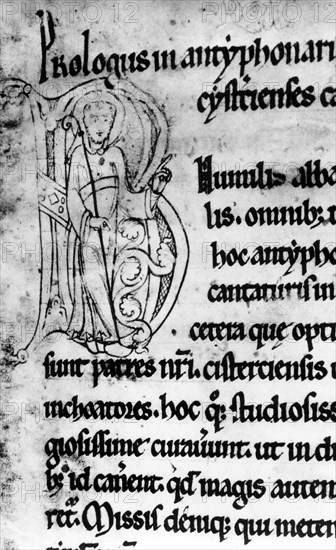 Prologus in antyphonari
cystrienses ca
B
humilis abba
lis. omnib; t
hoc antypho
cantaturis in
cetera que opti
sunt patres nr̄i. cisterciensis u
inchoatores. hoc q̄; studiosiss
giosissime curauerunt. ut in di
b; id canerent. qd̄ magis auten
ret. Missis deniq; qui meten